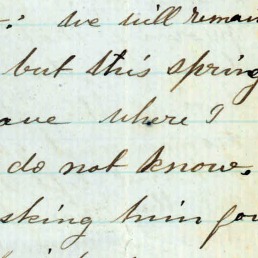 we will remain
but this spring
where I
do not know.
asking him for